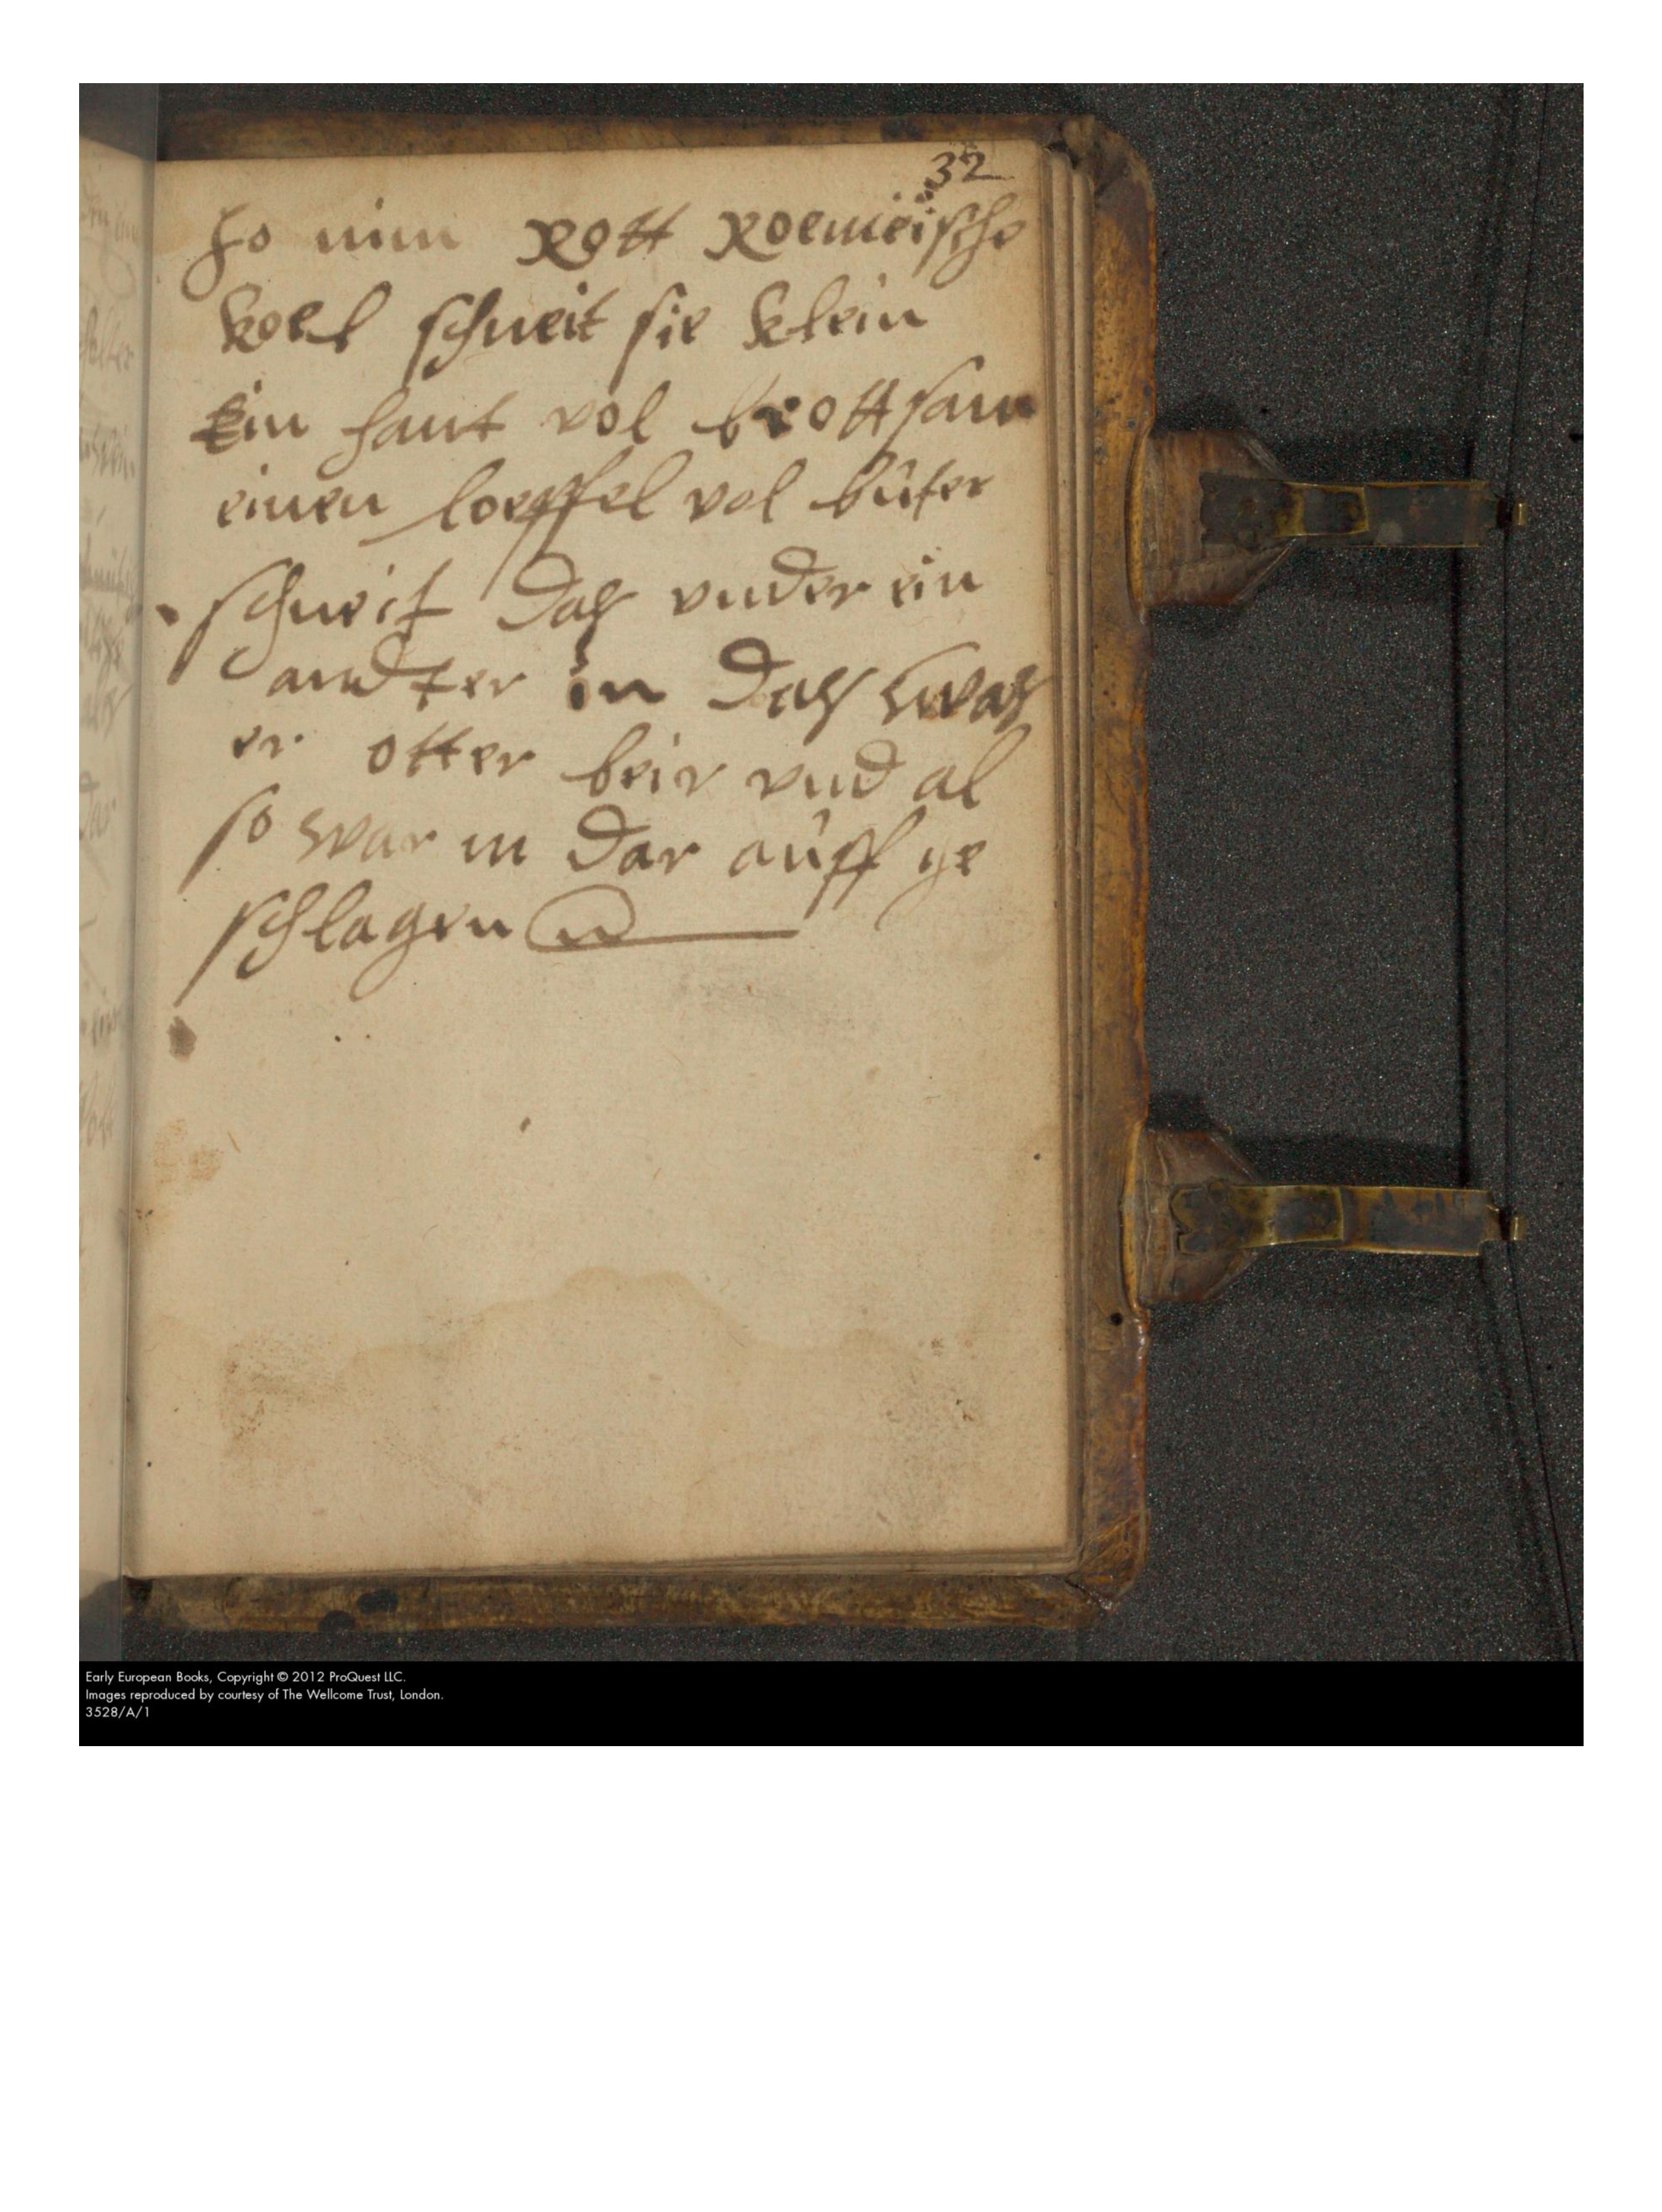 32
so nim Rott Roemeische
koel schneit sie klein
Ein hant vol brottsam
einen loeffel vol buter
schneit das vnder ein
andter in das was
er otter beir vnd al
so war m dar auff ge
schlagen
Early European Books, Copyright © 2012 ProQuest LLC.
Images reproduced by courtesy of The Wellcome Trust, London.
3528/A/1